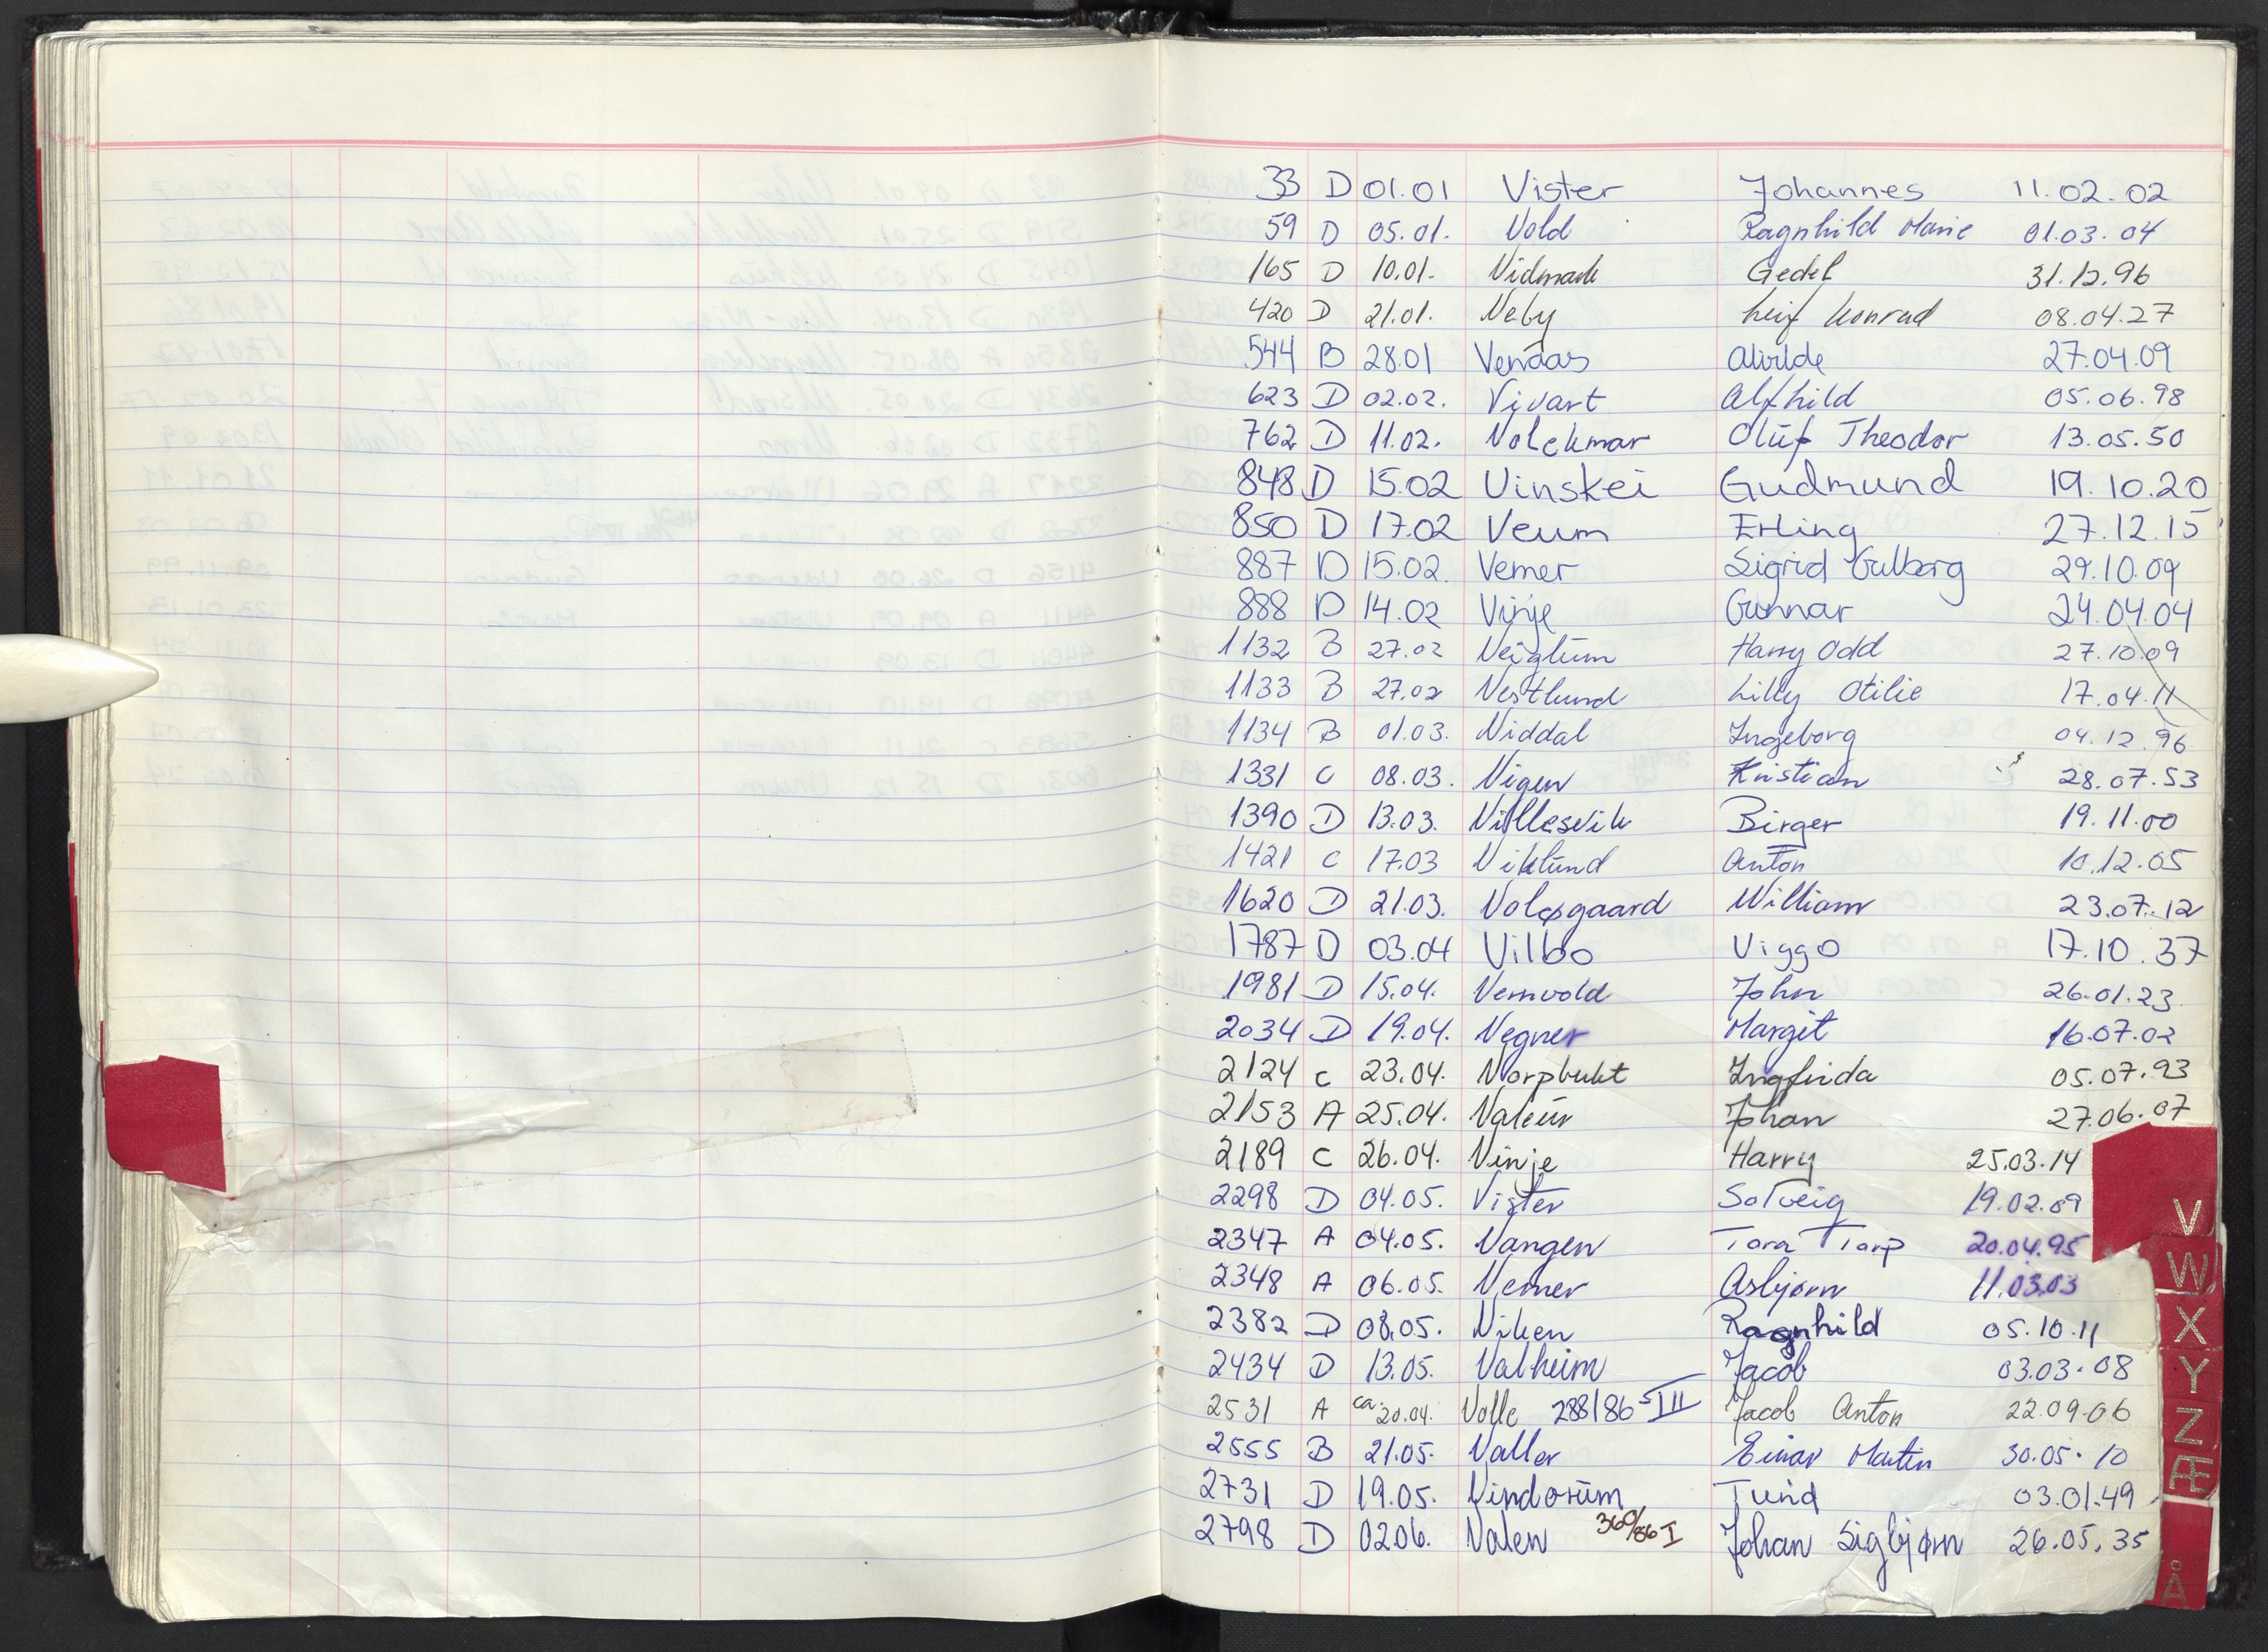 33 D 01.01 Vister Johannes 11.02.02
59 D 05.01. Vold Ragnhild Marie 01.03.04
165 D 10.01. Vidmark Gedel 31.12.96
420 D 21.01. Veby Leif Konrad 08.04.27
544 B 28.01 Vendas Alvilde 27.04.09
623 D 02.02. Vivart Alfhild 05.06.98
762 D 11.02. Volckmar Oluf Theodor 13.05.50
848 D 15.02 Vinskei Gudmund 19.10.20
850 D 17.02 Veum Erling 27.12.15
887 D 15.02. Verner Sigrid Gulborg 29.10.09
888 D 14.02 Vinje Gunnar 24.04.04
1132 B 27.02 Veiglum Harry Odd 27.10.09
1133 B 27.02 Vestlund Lilly Otilie 17.04.11
1134 B 01.03. Viddal Ingeborg 04.12.96
1331 C 08.03. Vigen Kristian 28.07.53
1390 D 13.03. Villesvik Birger 19.11.00
1421 C 17.03 Viklund Anton 10.12.05
1620 D 21.03. Volsgaard William 23.07.12
1787 D 03.04 Vilbo Viggo 17.10.37
1981 D 15.04. Vernvold John 26.01.23
2034 D 19.04. Vegner Margit 16.07.02
2124 C 23.04. Vorpbukt 05.07.93
2153 A 25.04. Valeur Johan 27.06.07
2189 C 26.04. Vinje Harry 25.03.14
2298 D 04.05. Vister Solveig 19.02.09
2347 A 04.05. Vangen Tora Torp 20.04.95
2348 A 06.05. Verner Asbjørn 11.03.03
2382 D 08.05. Viken Ragnhild 05.10.11
2434 D 13.05. Valheim Jacob 03.03.08
2531 A ca 20.04. Volle 288/86 S III Jacob Anton 22.09.06
2555 B 21.05. Valler Einar Martin 30.05.10
2731 D 19.05. Vindorum Turid 03.01.49
2798 D 02.06. Valen 360/86 I Johan Sigbjørn 26.05.35
V
W
X
Y
Z
Æ
Å